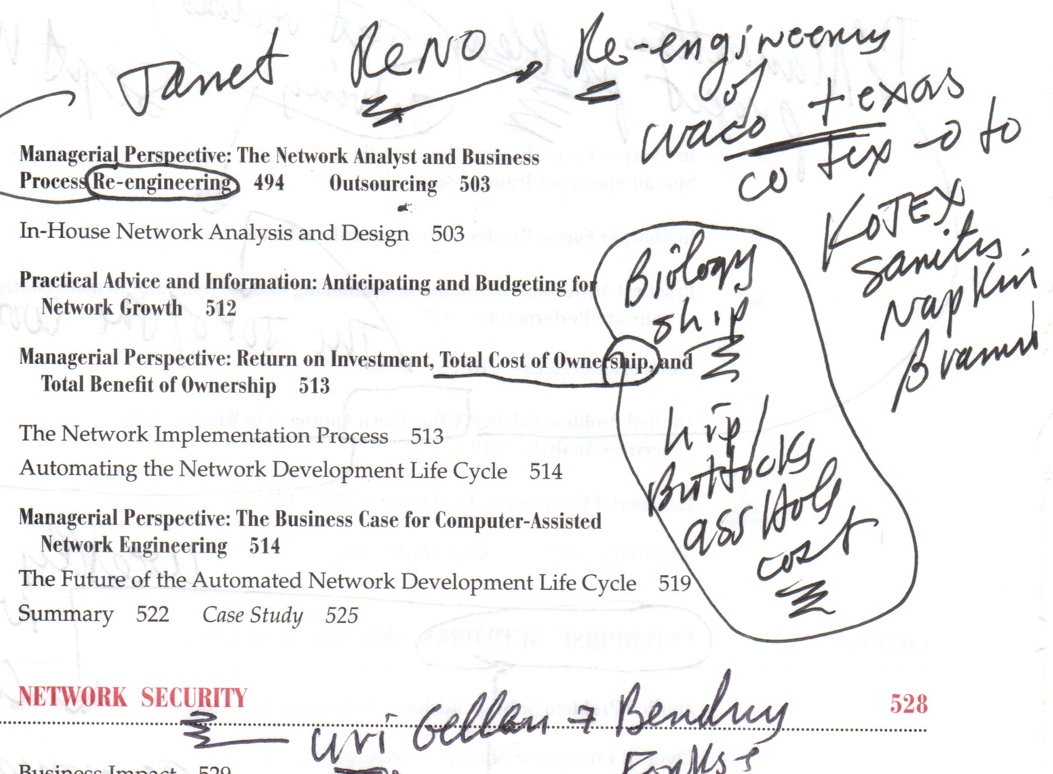 Janet Reno Re-engineering
of
waco texas
co tex o to
Managerial Perspective: The Network Analyst and Business
Process Re-engineering 494 Outsourcing 503
In-House Network Analysis and Design 503
KOTEX
napkin
Biology
ship
Practical Advice and Information: Anticipating and Budgeting for
Network Growth 512
Managerial Perspective: Return on Investment, Total Cost of Ownership, and
Total Benefit of Ownership 513
hip
Buttocks
asshole
cost
The Network Implementation Process 513
Automating the Network Development Life Cycle 514
Managerial Perspective: The Business Case for Computer-Assisted
Network Engineering 514
The Future of the Automated Network Development Life Cycle 519
Summary 522 Case Study 525
NETWORK SECURITY 528
uri Gellar +
Business Impact 529